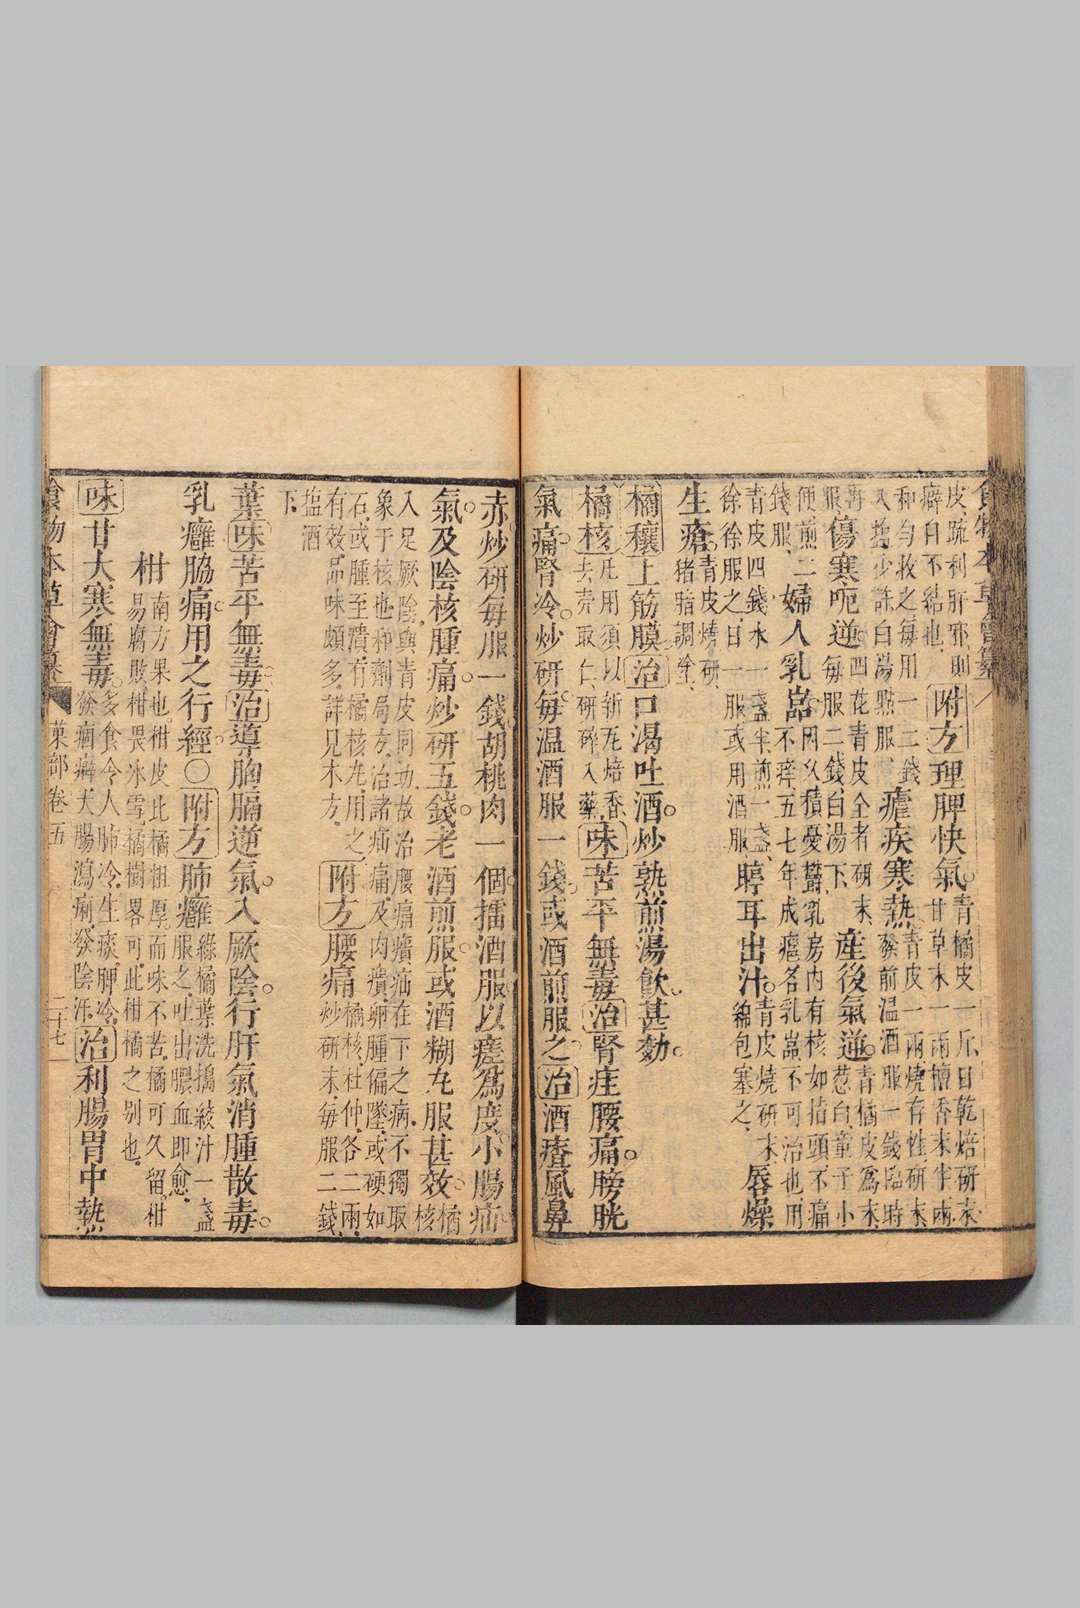 皮疏利肝邪則
癖自不結也
附方
理脾快氣。青橘皮一斤日乾焙研末
甘草末一兩檀香末半兩
和勻收之每用一二錢
入塩少許白湯點服
瘧疾寒熱
青皮一兩燒存性研末
發前溫酒服一錢臨時
再服
傷寒呃逆四花青皮全者研末
每服二錢白湯下
產後氣逆。青橘皮爲末
葱白童子小
便煎二
錢服
婦人乳嵓因久積憂鬱乳房內有核如指頭不痛
不痒五七年成癰名乳嵓不可治也用
青皮四錢水一盞半煎一盞
徐徐服之日一服或用酒服
聤耳出汁。青皮燒研末
綿包塞之
唇燥
生瘡。青皮燒研
猪脂調塗
橘穰上筋膜治口渴吐酒。炒熟煎湯飲甚効。
橘核凡用須以新瓦焙香
去壳取仁研碎入藥
味苦平無毒治腎疰腰痛。膀胱
氣痛。腎冷。炒研每溫酒服一錢或酒煎服之。治酒㾴風鼻
赤炒研每服一錢胡桃肉一個擂酒服以瘥爲度小腸疝
氣。及陰核腫痛。炒研五錢。老酒煎服。或酒糊丸服甚效。橘核
入足厥陰與青皮同功故治腰痛㿗疝在下之病不獨取
象于核也和劑局方治諸疝痛及肉㿗卵腫偏墜或硬如
石或腫至潰有橘核丸用之
有效品味頗多詳見本方
附方
腰痛橘核杜仲各二兩
炒研末每服二錢
塩酒
下
葉味苦平無毒治導胸膈逆氣。入厥陰。行肝氣消腫散毒。
乳癰脇痛。用之行經。〇附方肺癰綠橘葉洗搗絞汁一盞
服之吐出膿血即愈
柑南方果也柑皮比橘粗厚而味不苦橘可久留柑
易腐敗柑畏冰雪橘樹畧可此柑橘之别也
味甘大寒無毒。多食令人肺冷生痰脾冷
發痼癖大腸瀉痢發陰汗
治利腸胃中熱
食物本草會纂 菓部卷五 二十七